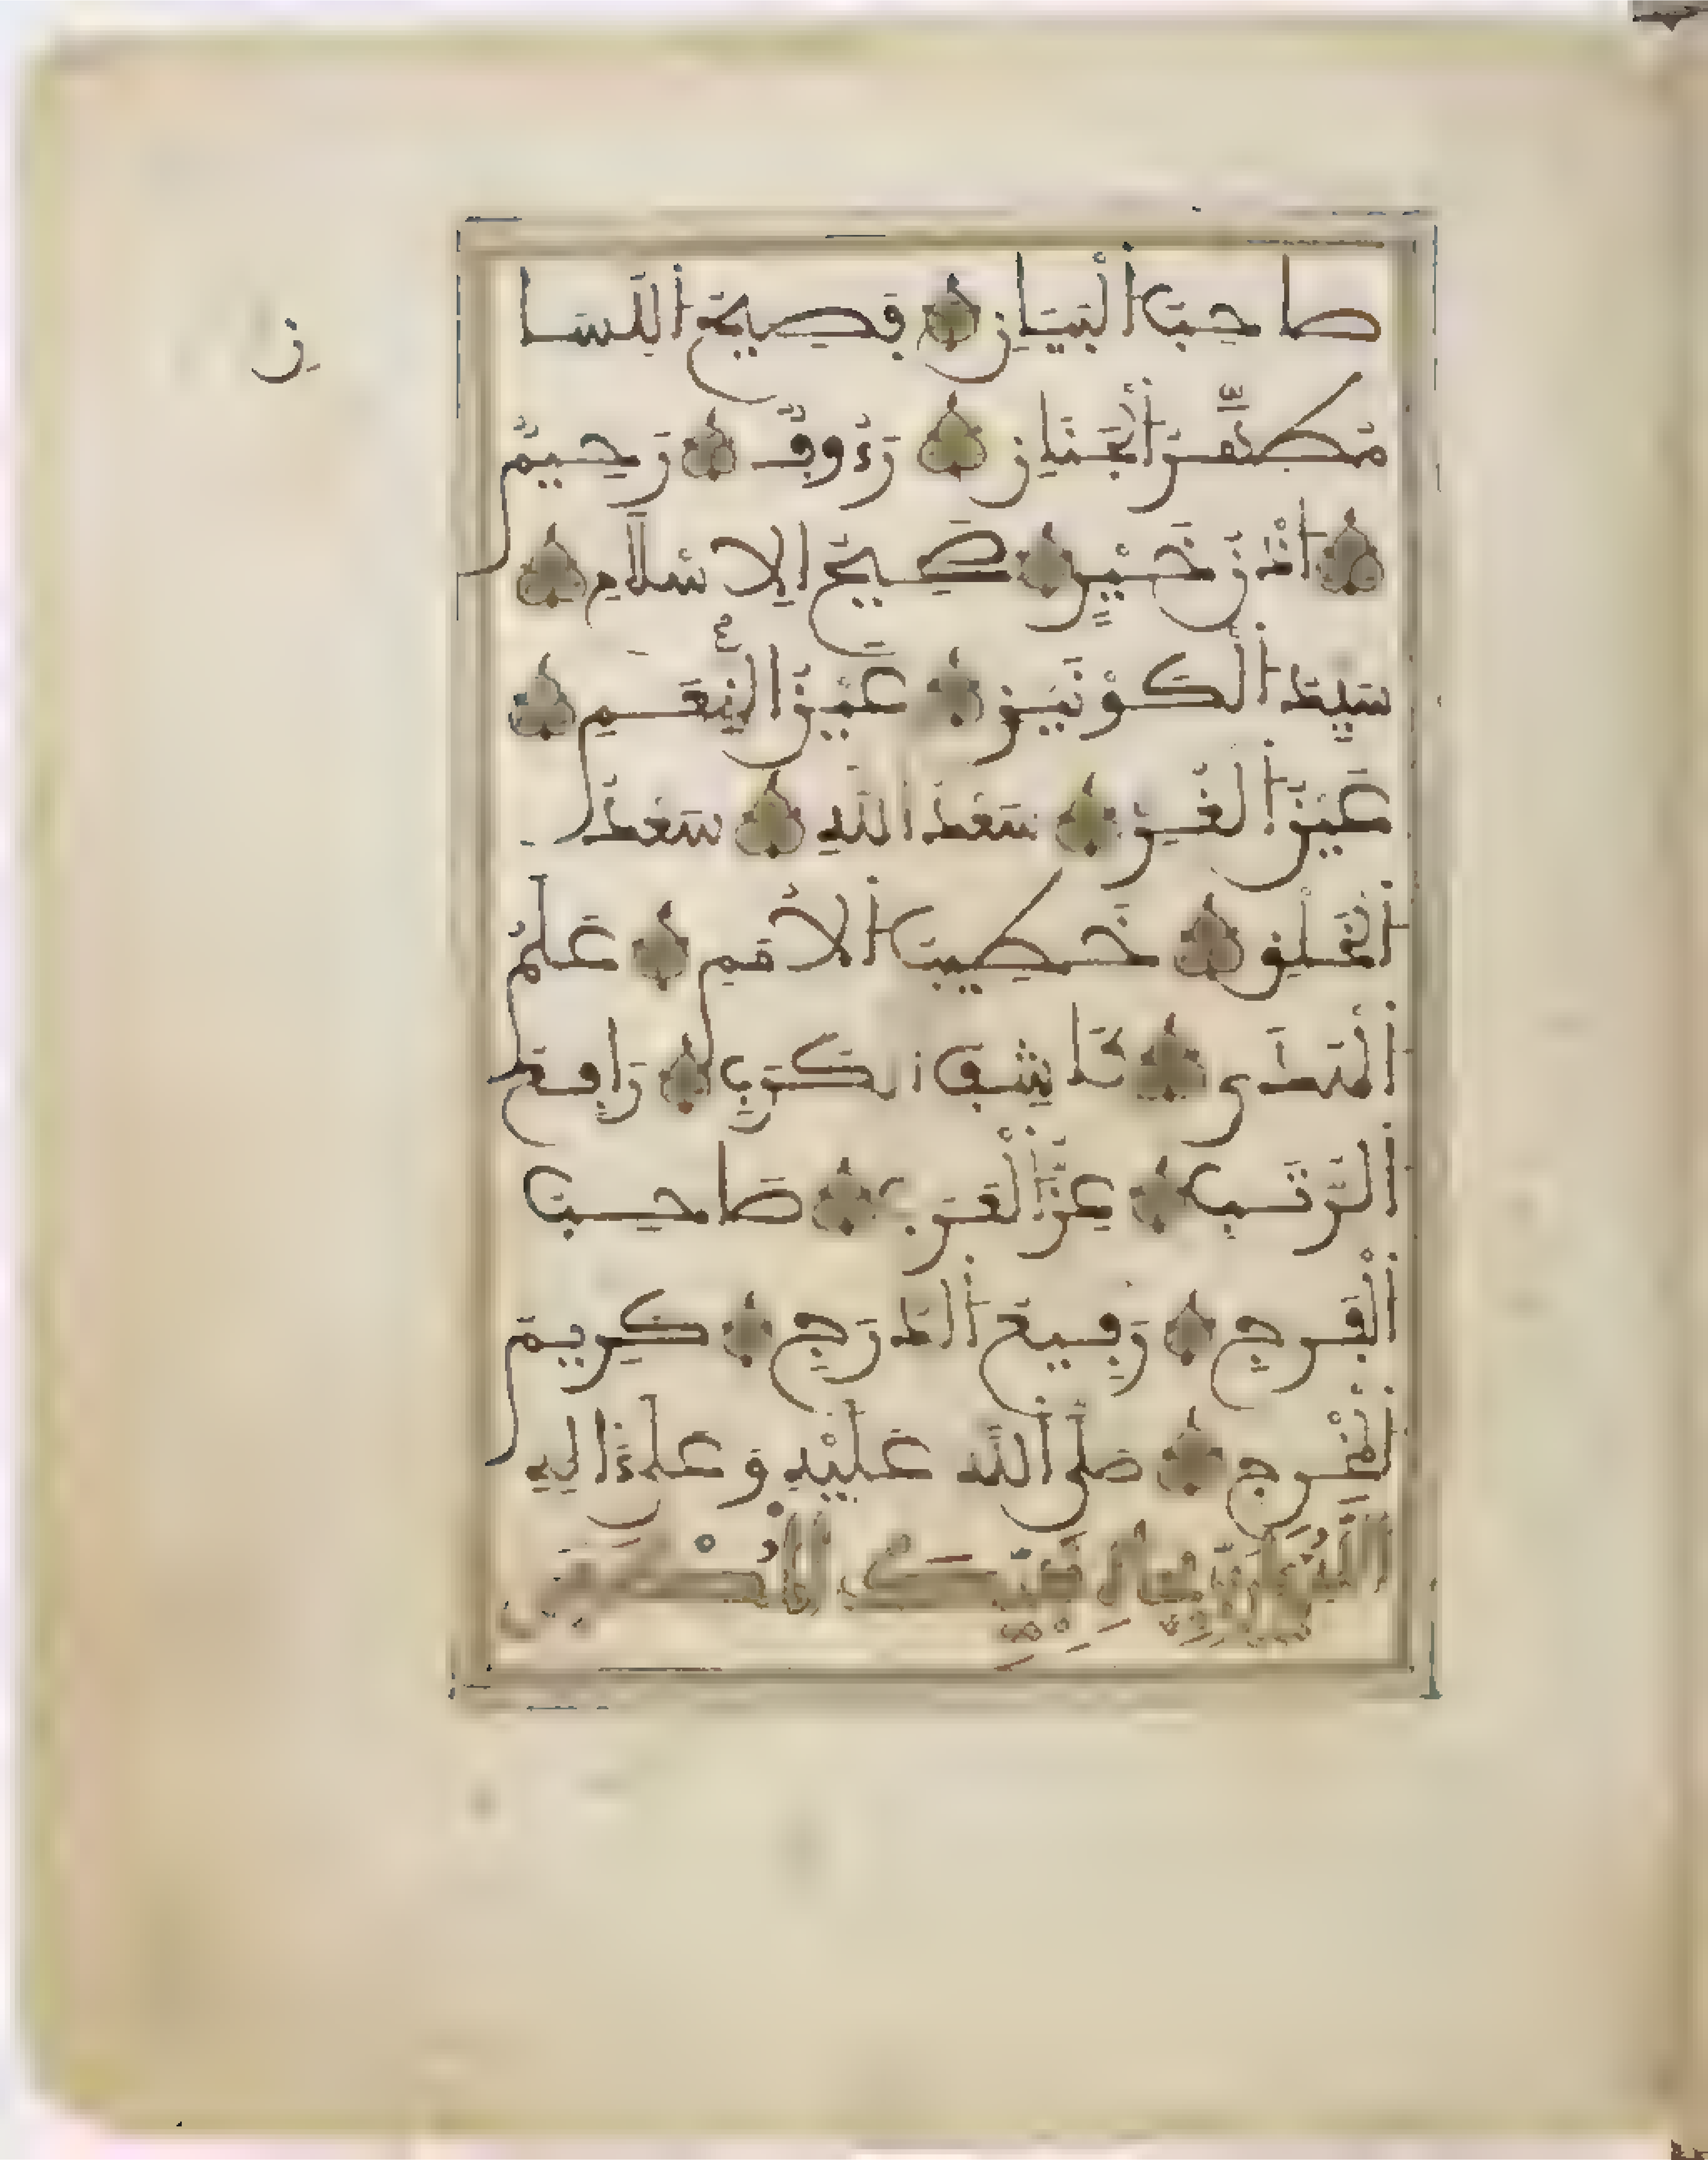 صاحب البيان فصيح اللسا
ن
مطهر الجنان رءوف رحيم
اذن خير صحيح الاسلام
سيد الكونين عين النعيم
عين الغر سعد الله سعد
الخلق خطيب الامم علم
الهدى كاشف الكرب رافع
الرتب عز العرب صاحب
الفرج رفيع الدرج كريم
المخرج صلى الله عليه وعلى ءاله
اللهم يا رب بجاه نبيك المصطفى